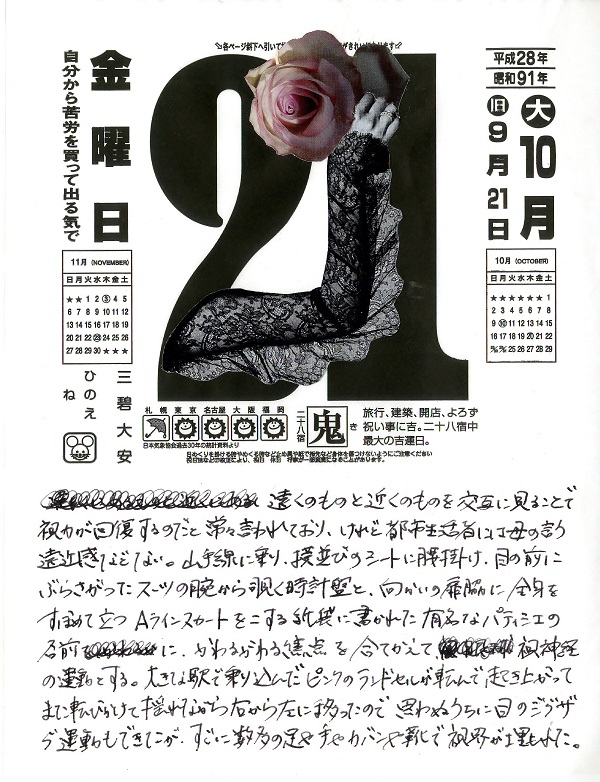 ☆各ページ斜下へ引いて
がきれいになります☆
平成28年
昭和91年
大
10月
旧
9月21日
21
金曜日
自分から苦労を買って出る気で
11月 (NOVEMBER)
日月火水木金土
★★12345
6 7 8 9 10 11 12
13 14 15 16 17 18 19
20 21 22 23 24 25 26
27 28 29 30★★★
10月 (OCTOBER)
日月火水木金土
★★★★★★1
2 3 4 5 6 7 8
9 10 11 12 13 14 15
16 17 18 19 20 21 22
23/30 24/31 25 26 27 28 29
三碧 大安
ひのえ
ね
札幌 東京 名古屋 大阪 福岡
日本気象協会過去30年の統計資料より
二十八宿
鬼
き
旅行、建築、開店、よろず
祝い事に吉。二十八宿中
最大の吉運日。
遠くのものと近くのものを交互に見ることで
視力が回復するのだと常々言われており、けれど都市生活者には母の言う
遠近感などない。山手線に乗り、横並びのシートに腰掛け、目の前に
ぶらさがったスーツの腕から覗く時計盤と、向かいの扉脇に全身を
すぼめて立つAラインスカートをこする紙袋に書かれた有名なパティシエの
名前に、かわるがわる焦点を合てかえて視神経
の運動とする。大きな駅で乗り込んだピンクのランドセルが転んで起き上がって
また転びかけて揺れながら右から左に移ったので思わぬうちに目のジグザ
グ運動もできたが、すぐに数多の足やチャカバンや靴で視界が埋もれた。